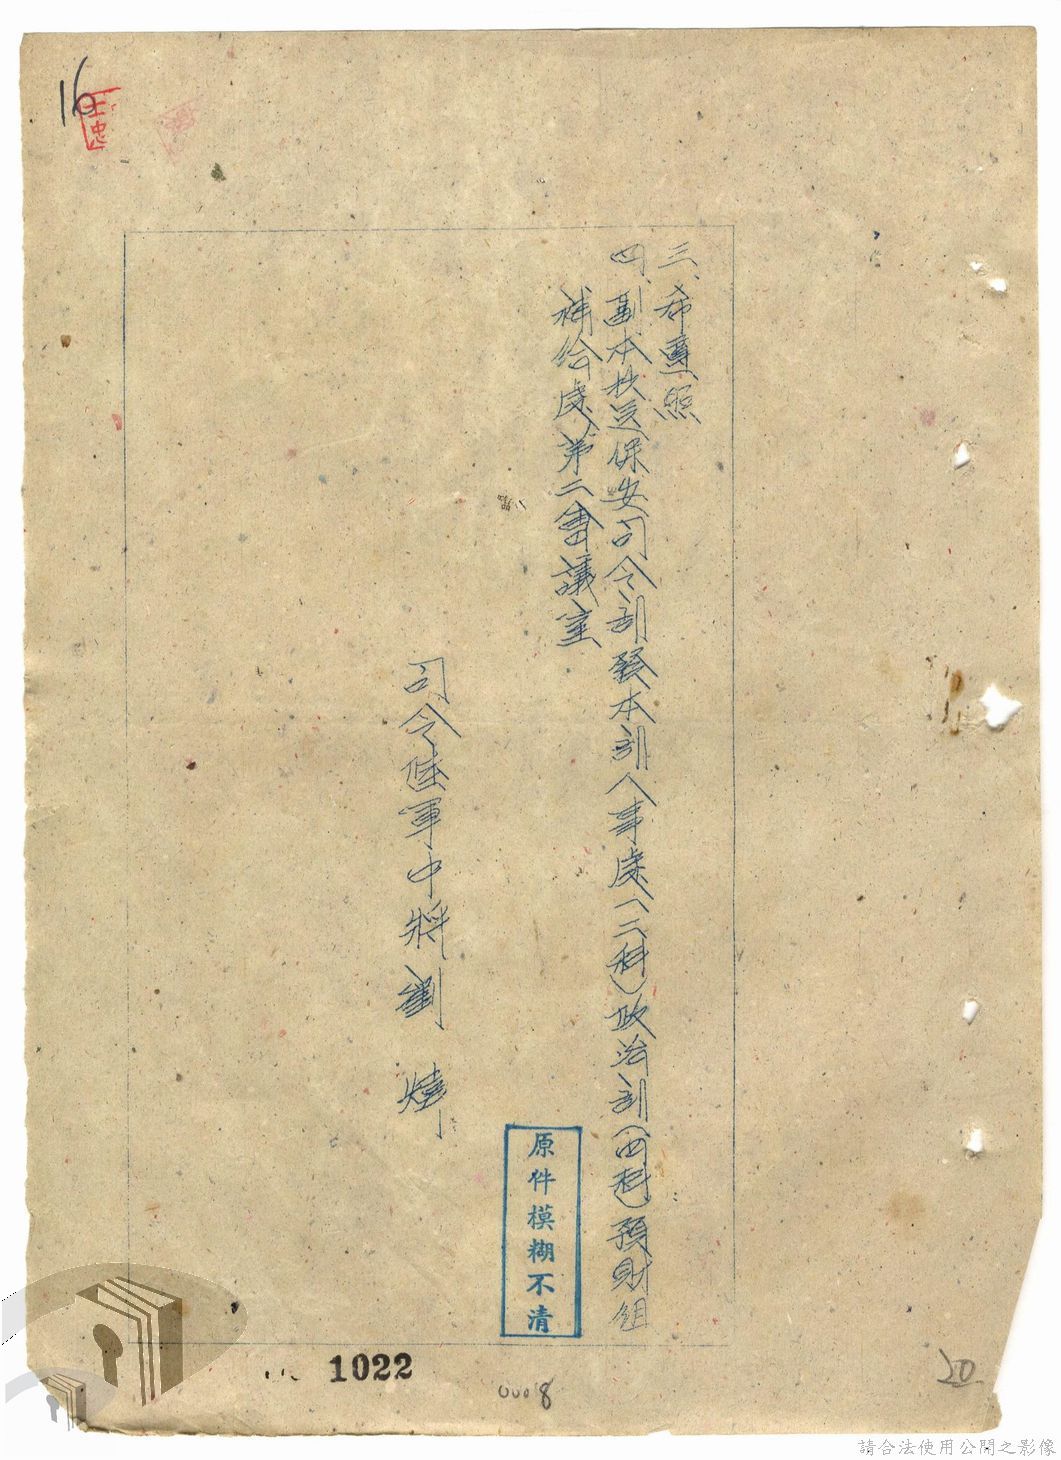 16
三、希遵照
四、副本抄送保安司令部發本部人事處(二科)政治部(四科)預財組
補給處第二會議室
司令陸軍中將劉 煒
原件模糊不清
1022
00018
20
請合法使用公開之影像